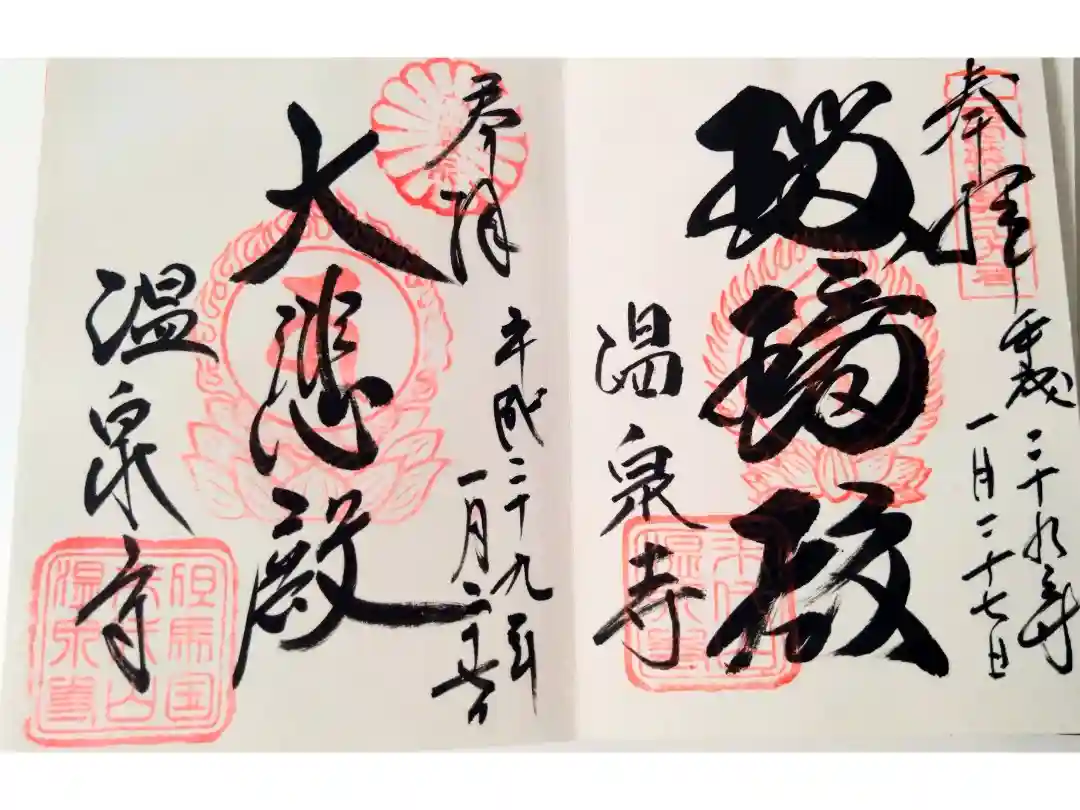 奉拝
平成二十九年
一月二十七日
瑠璃殿
温泉寺
奉拝
平成二十九年
一月二十
大悲殿
温泉寺
但馬国
末代山
温泉寺